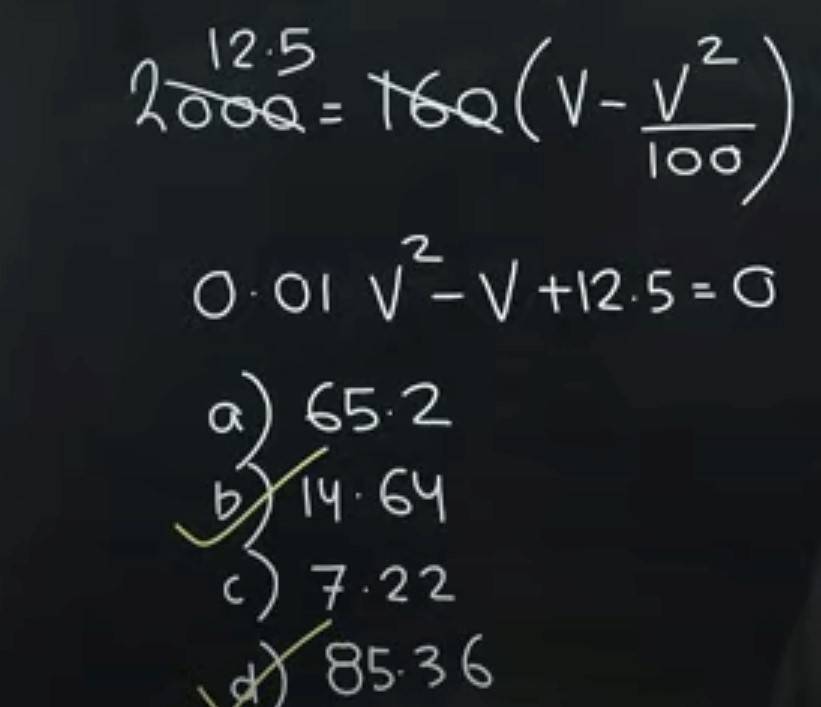 12.5
2000 = 160 (V - V²/100)
0.01 V² - V + 12.5 = 0
a) 65.2
b) 14.64
c) 7.22
d) 85.36